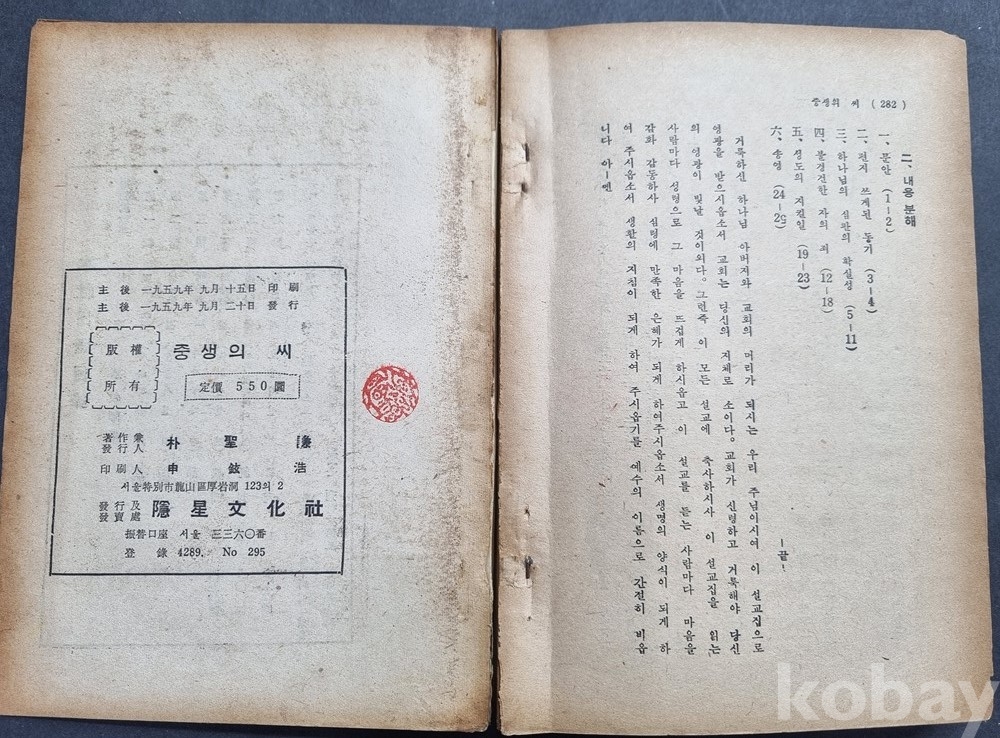 중생의 씨 (282)
二、내용 분해
一、문안 (1-2)
二、편지 쓰게된 동기 (3-4)
三、하나님의 심판의 확실성 (5-11)
四、불경건한 자의 죄 (12-18)
五、성도의 지킬일 (19-23)
六、송영 (24-25)
-끝-
거룩하신 하나님 아버지와 교회의 머리가 되시는 우리 주님이시여 이 설교집으로
영광을 받으시옵소서 교회는 당신의 지체로 소이다。교회가 신령하고 거룩해야 당신
의 영광이 빛날 것이외다。그런즉 이 모든 설교에 축사하시사 이 설교집을 읽는
사람마다 성령으로 그 마음을 뜨겁게 하시옵고 이 설교를 듣는 사람마다 마음을
감화 감동하사 심령에 만족한 은혜가 되게 하여주시옵소서 생명의 양식이 되게 하
여 주시옵소서 생활의 지침이 되게 하여 주시옵기를 예수의 이름으로 간절히 비옵
니다 아ー멘
主後 一九五九年 九月 十五日 印刷
主後 一九五九年 九月 二十日 發行
版權
所有
중생의 씨
定價 550圜
著作兼
發行人 朴聖謙
印刷人 申鉉浩
서울特別市龍山區厚岩洞 123의 2
發行及
發賣處 隱星文化社
振替口座 서울 三三六〇番
登錄 4289. No 295
kobay